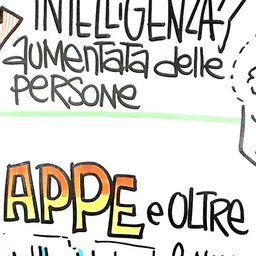 INTELLIGENZA?
AUMENTATA delle
PERSONE
APPE e OLTRE